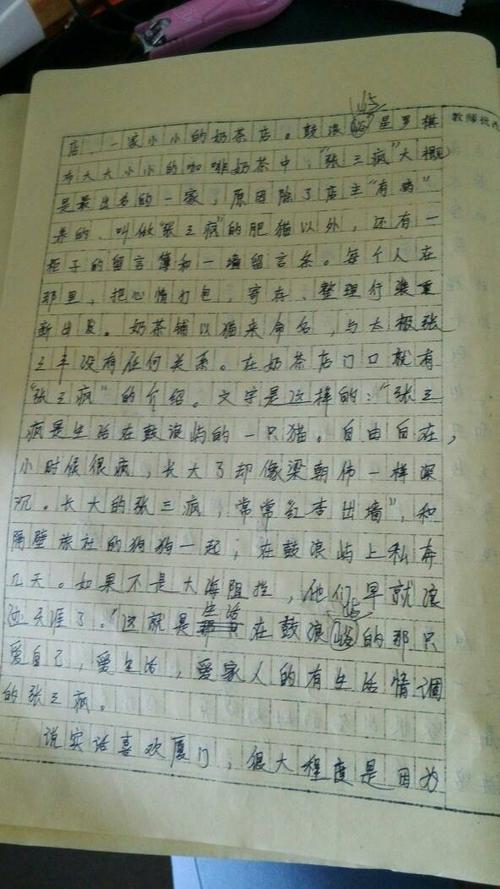 屿
教师批
店，一家小小的奶茶店。鼓浪屿星罗棋
布大大小小的咖啡奶茶中，"张三疯"大概
是最出名的一家，原因除了店主"有鸡"
养的、叫做"张三疯"的肥猫以外，还有一
柜子的留言簿和一墙留言条。每个人在
那里，把心情打包，寄存、整理行装重
新出发。奶茶铺以猫来命名，与太极张
三丰没有任何关系。在奶茶店门口就有
"张三疯"的介绍。文字是这样的："张三
疯是生活在鼓浪屿的一只猫。自由自在，
小时候很疯，长大了却像梁朝伟一样深
沉。长大的张三疯，常常"红杏出墙"，和
隔壁旅社的狗狗一起，在鼓浪屿上私奔
几天。如果不是大海阻拦，他们早就浪
迹天涯了。"这就是生活在鼓浪屿的那只
爱自己，爱生活，爱家人的有生活情调
的张三疯。
说实话喜欢厦门，很大程度是因为